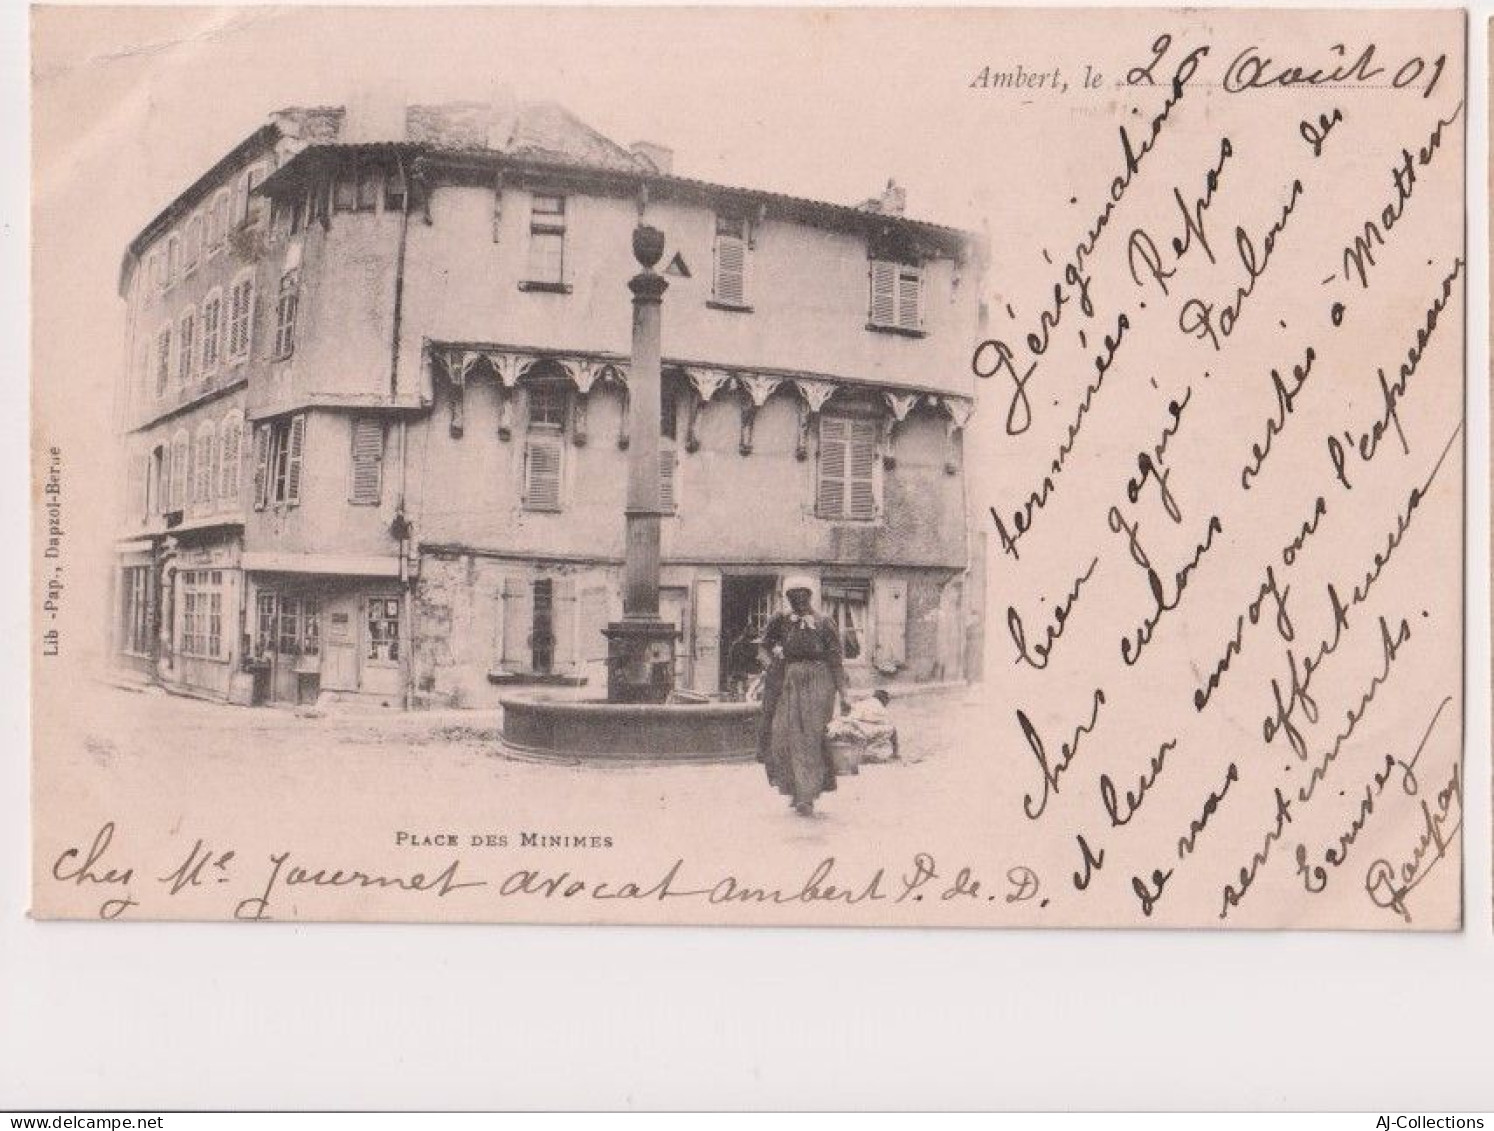 Ambert, le 26 Août 01
Pérégrinations
terminées. Repos
bien gagné. Parlons des
chers colons restés à Matten
et leur envoyons l'expression
de nos affectueux
sentiments.
Ecrivez
Lib.-Pap., Dapzol-Berne
PLACE DES MINIMES
chez Me Journet avocat Ambert P. de D.
AJ-Collections